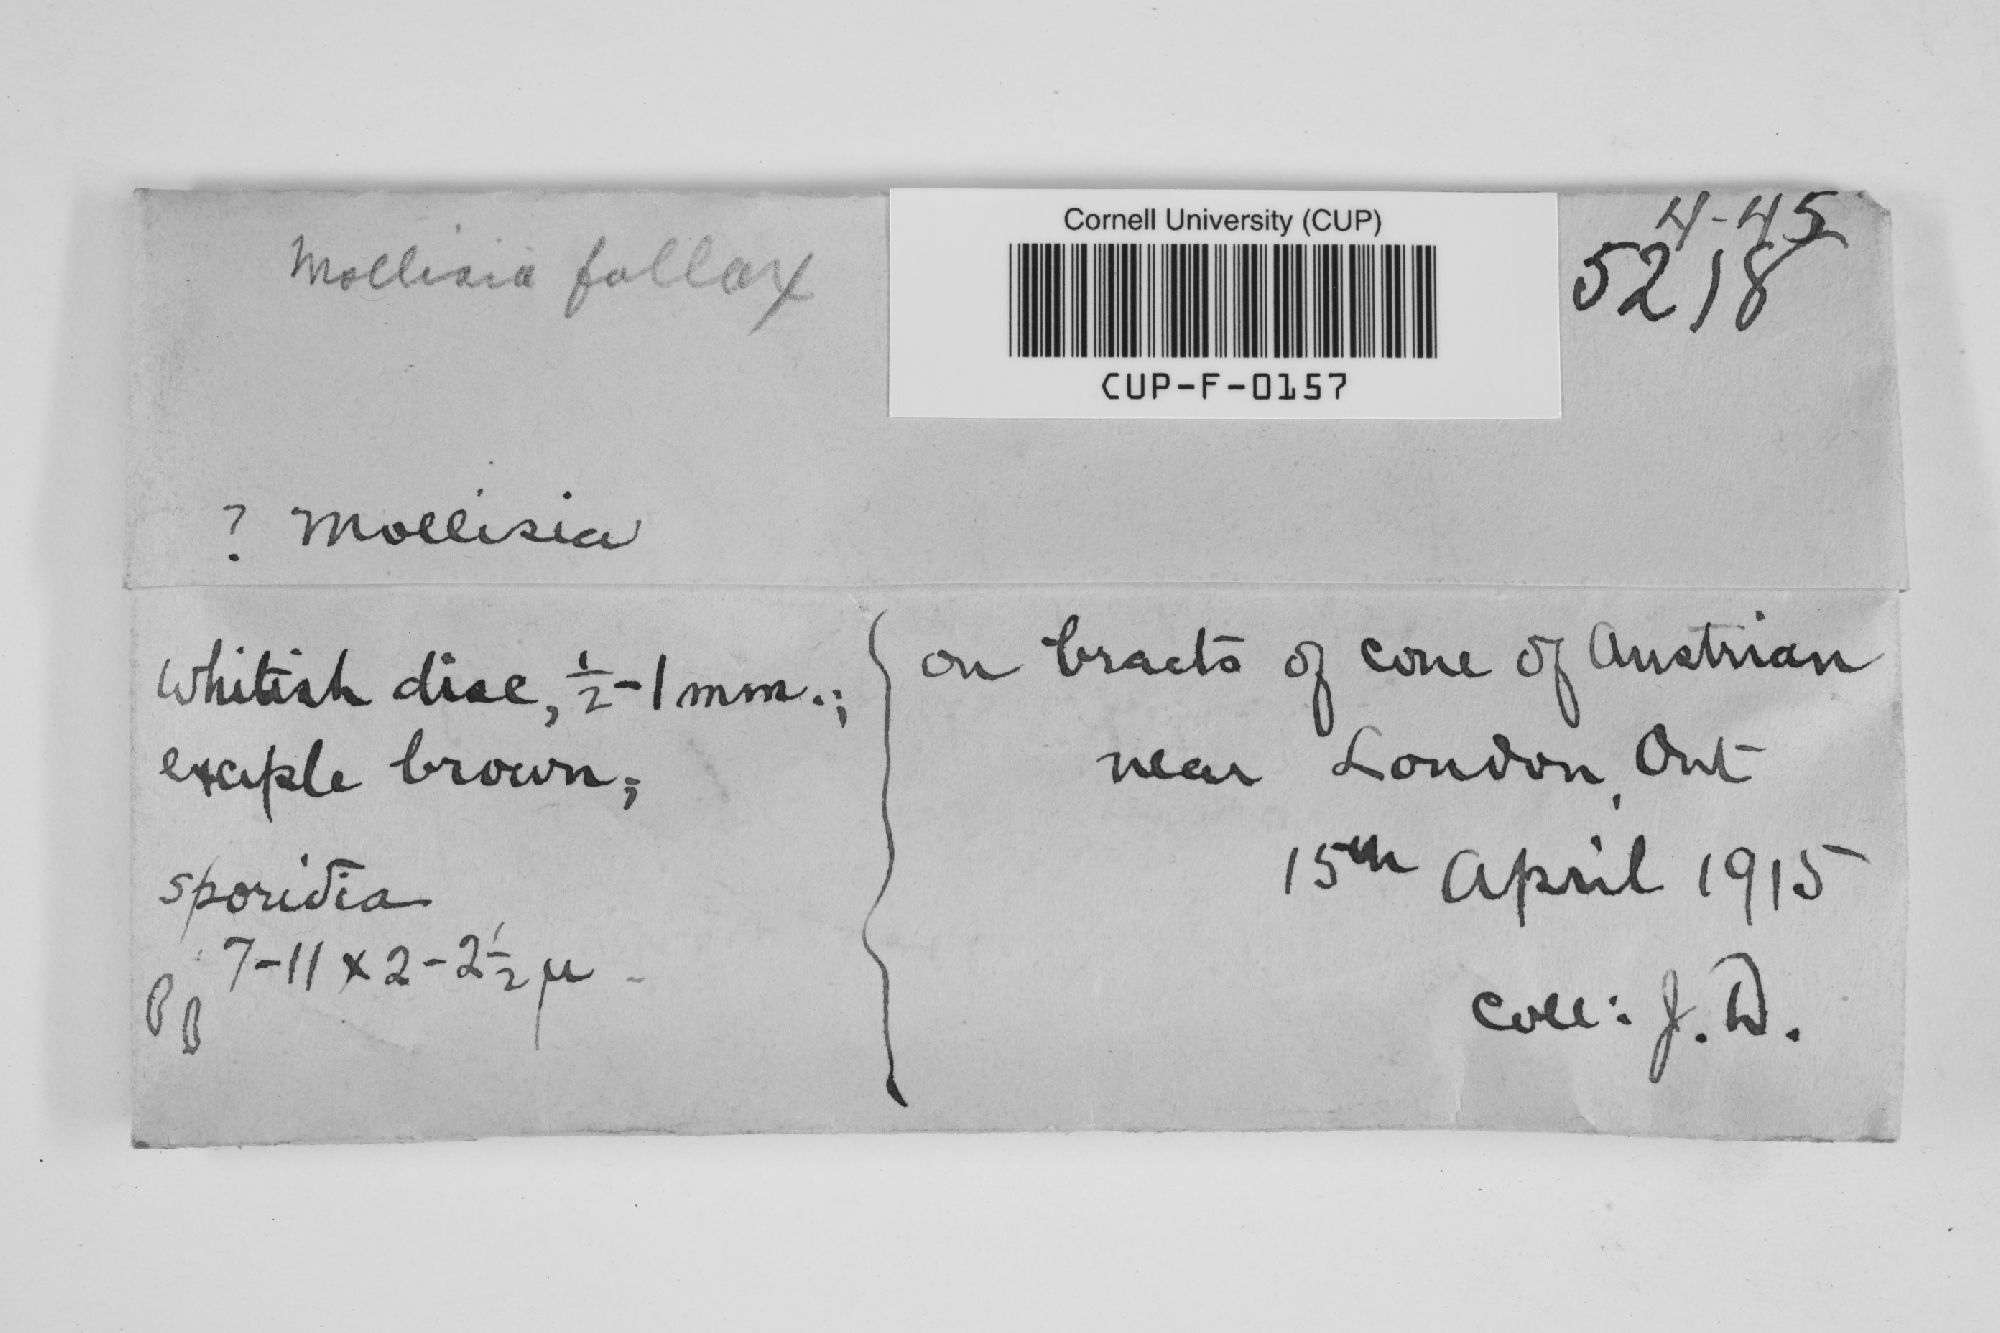 Mollisia fallax
Cornell University (CUP)
CUP-F-0157
4-45
5218
? Mollisia
Whitish disc, ½-1 mm.;
exciple brown;
sporidia
7-11 x 2-2½ µ
on bracts of cone of Austrian
near London, Ont
15th April 1915
Coll: J. D.